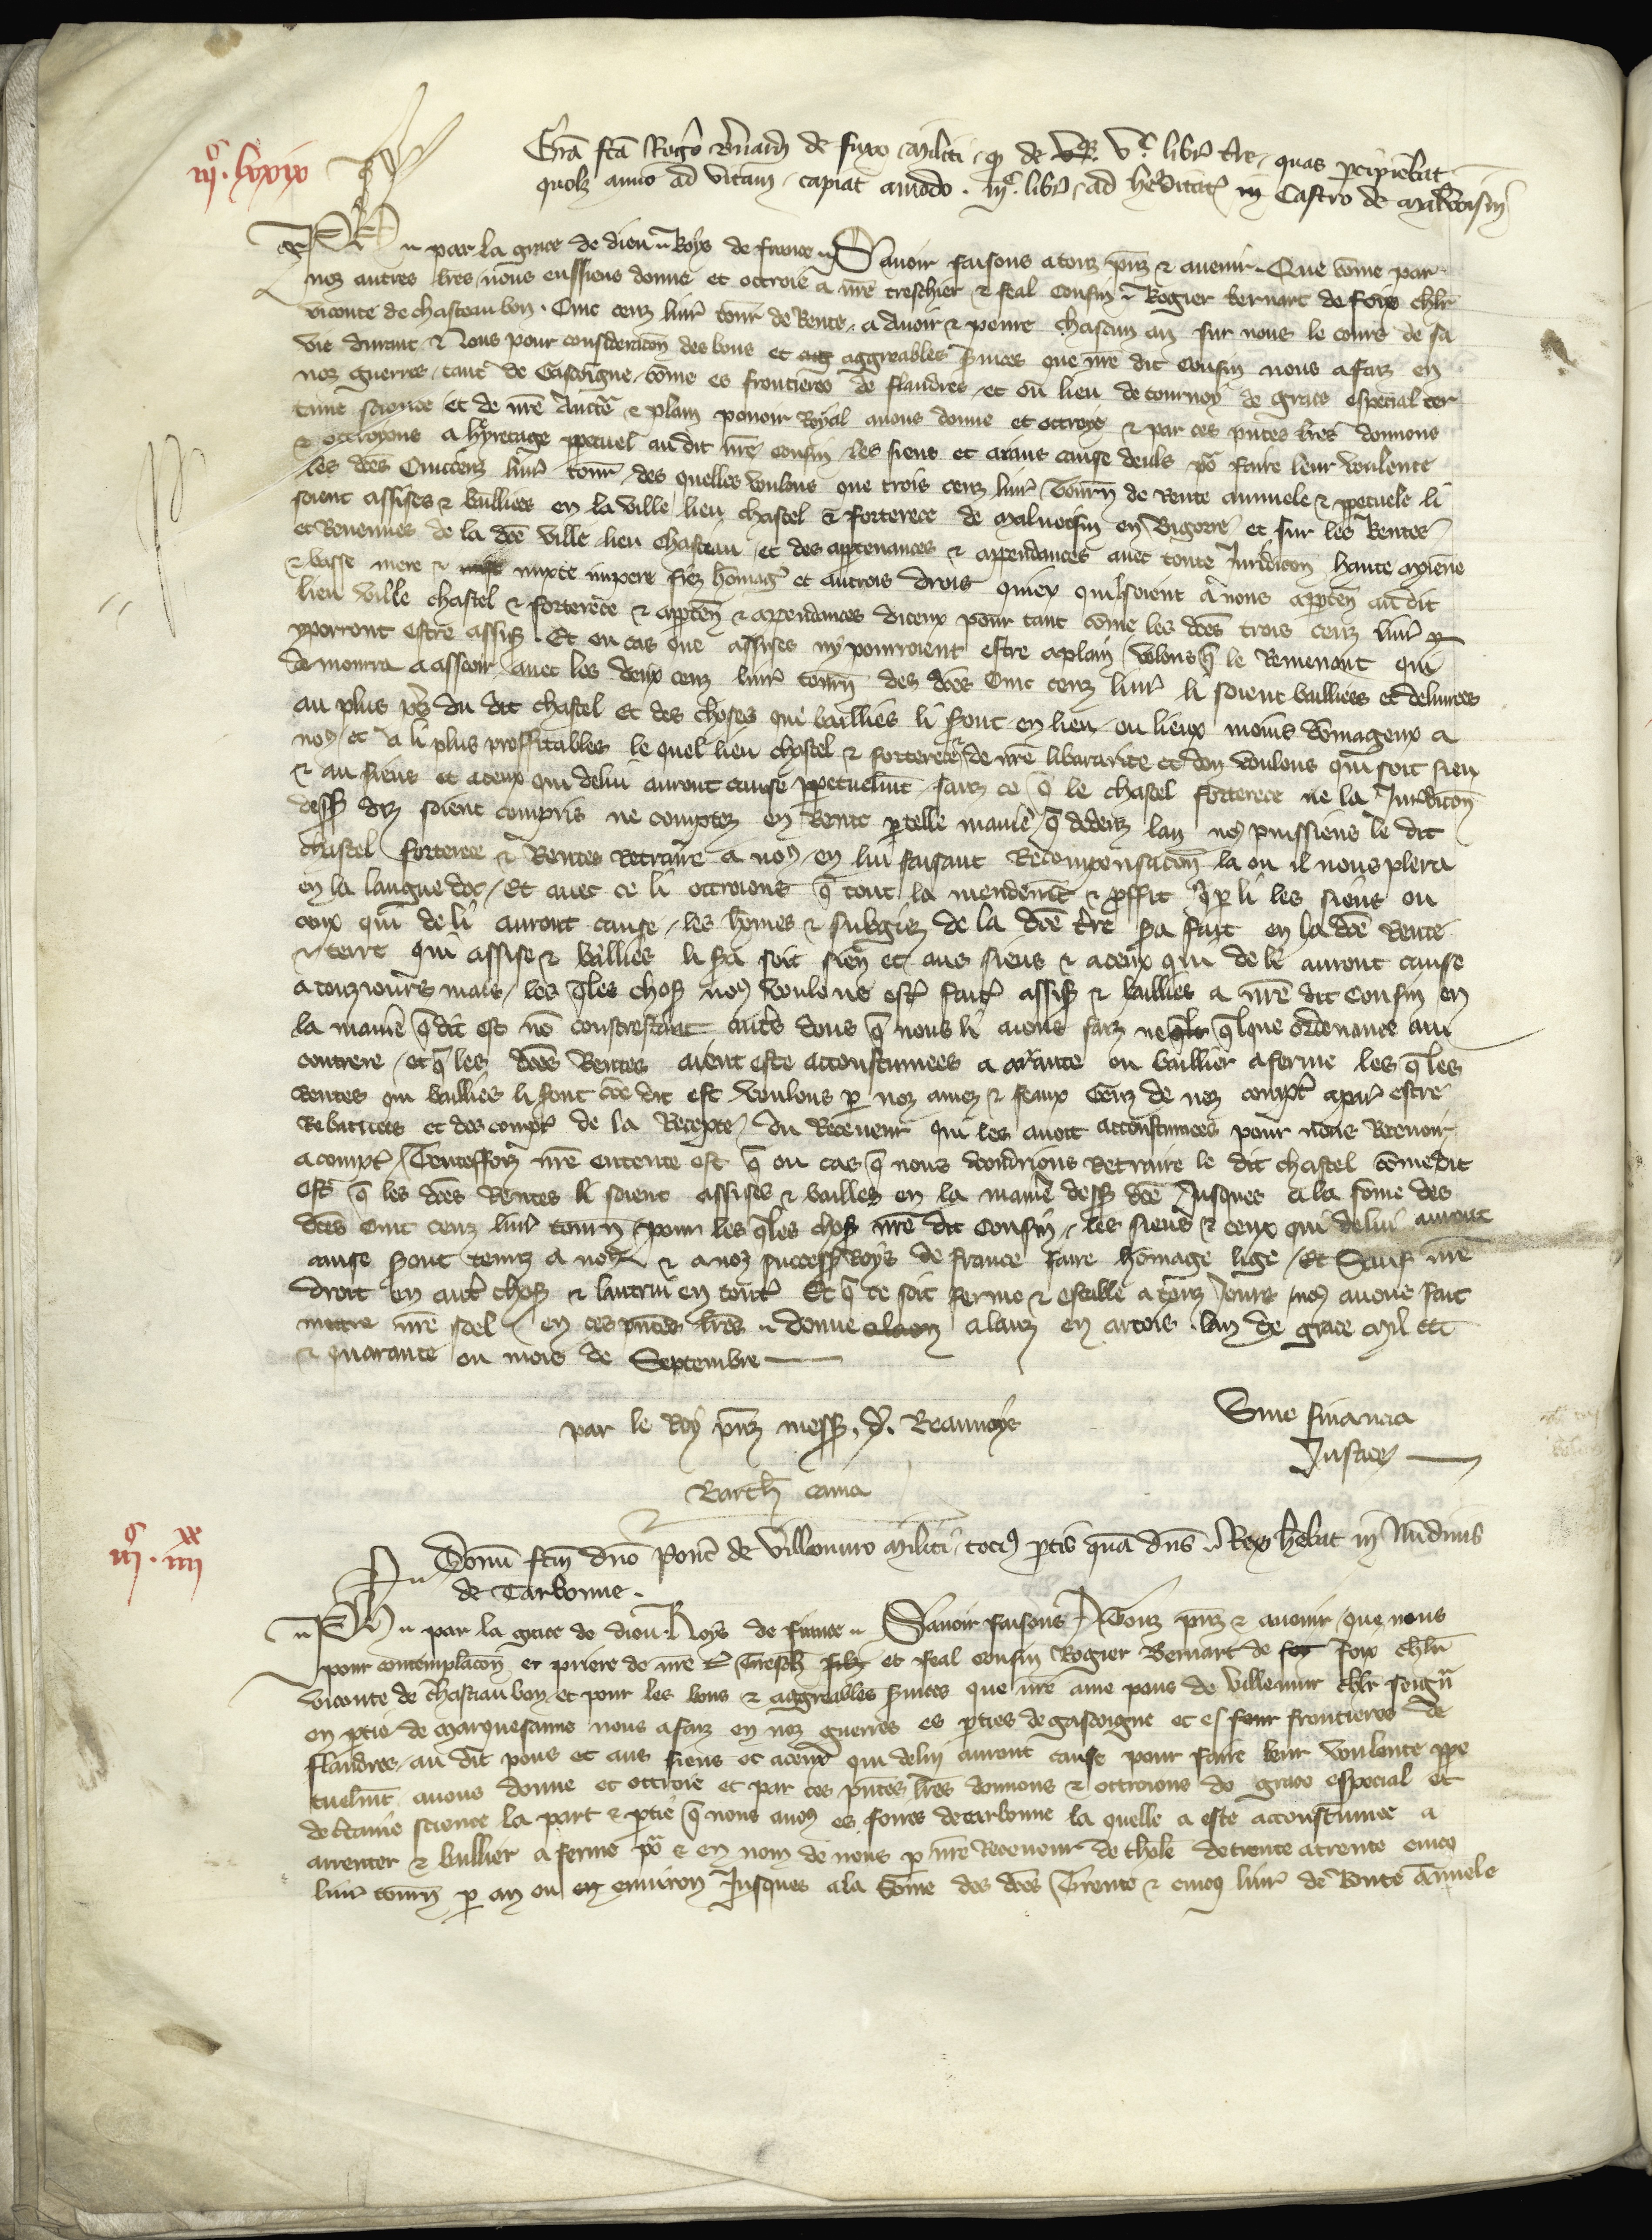 Gra fca Rogo Bnardi de Fuxo militi q de Vc libr tr quas percipiebat
quolz anno ad vitam capiat amodo iijc libr ad hereditate in Castro de Malvoisin
iijo lxxix
Ph par la grace de dieu Roys de france Savoir faisons a touz pnz & avenir Que come par
noz autres lres nous eussiens donne et octroie a nre treschier & feal cousin Rogier bernart de foix chlr
viconte de chasteau bon Cinc cenz livr tour de Rente a avoir & penre chascun an sur nous le cours de sa
vie durant & Nous pour consideracon des bons et agg aggreables svices que nre dit cousin nous a faiz en
noz guerres tant de Gascoigne come es frontieres de flandres et ou lieu de tournoy de grace especial cer
tainne science et de nre Aucte & plain povoir Royal avons donne et octroye & par ces pntes lres donnons
& octroyons a hyretage ppetuel au dit nre cousin les siens et aians cause deuls po faire leur voulente
les dces Cinccenz livr tour des quelles voulons que trois cenz livr tourn de Rente annuele & ppetuele li
soient assises & baillies en la ville lieu chastel & forterece de Malvoisin en Bigorre et sur les Rentes
et Revenues de la dce ville lieu chasteau et des aptenances & appendances avec toute Juridicon haute moiene
& basse mere & mixte impere fiez homag et autrois drois quiex quil soient a nous apptien au dit
lieu ville chastel & forterece & apptien & appendances diceux pour tant come les dces trois cenz livr
y porront estre assiss Et ou cas que assises ny pourroient estre a plain volons q le Remenant qui
demourra a asseoir avec les deux cenz livr tourn des dces Cinc cenz livr li soient baillies et delivrees
au plus ps du dit chastel et des choses qui baillies li sront en lieu ou lieux moins domageux a
nos et a li plus proffitables le quel lieu chastel & forterece de nre liberarite et don voulons qui soit sien
& au siens et a ceux qui de lui auront cause ppetuelmt sanz ce q le chastel forterece ne la Juridicon
dess diz soient compris ne comptez en Rente p telle manie q dedenz lan nos puissiens le dit
chastel forterece & Rentes Retraire a nos en lui faisant Recompensacon la ou il nous plera
en la langue doc Et avec ce li octroions q tout la mendemt & pffit q p li les siens ou
ceux qui de li auront cause les homes & subgiez de la dce tre sra fait en la dce Rente
& terre qui assise & baillies li sra soit sien et aus siens & a ceux qui de li auront cause
a touziours mais les qles choss nos voulons est fait assiss & baillies a nre dit cousin en
la manie q dit est no constrestant autes dons q nous li aions faiz ne qlque ordenance au
contrere et q les dces Rentes aient este accoustumees a arrante ou baillier a ferme les qles
Rentes qui baillies li sront coe dit est voulons p noz amez & feaux Genz de noz compt a par estre
Rebatues et descompt de la Recepte du Receveur qui les avoit accoustumees pour nous Recevoir
a compt Toutesfoiz nre entente est q ou cas q nous voudrions Retraire le dit chastel come dit
est q les dces Rentes li soient assises & bailles en la manie dess dce Jusques a la some des
dces cinc cenz livr tourn pour les qles choss nre dit cousin les siens & ceux qui de lui auront
cause sront tenuz a nos & a noz success Roys de france faire homage lige Et Sauf nre
droit en autr choss & lautrui en tout Et q ce soit ferme & estable a touz jours nos avons fait
mettre nre seel en ces pntes lres donne a lanz en artois lan de grace mil ccc
& quarante ou mois de Septembre
par le Roy pnz mess P Beaucoys
Barth cama
Sine financia
Justice
iijo iiijxx
Donu fcm dno Ponc de Villemuro militi tocis ptis qua dns Rex hebat in Nudinis
de Carbonne
Ph par la grace de dieu Roys de france Savoir faisons a Touz pnz & avenir que nous
pour contemplacon et priere de nre tresch et feal cousin Rogier Bernart de foix chlr
viconte de chastiau bon et pour les bons & aggreables svices que nre ame pons de villemur chlr seigr
en ptie de Marquesanne nous a faiz en noz guerres es pties de gascoigne et es frontieres de
flandres au dit pons et aus siens et a ceux qui de lui auront cause pour faire leur voulente ppe
tuelmt avons donne et octroie et par ces pntes lres donnons & octroions de grace especial et
de certaine science la part & ptie q nous avos es foires de carbonne la quelle a este accoustumee a
arrenter & baillier a ferme po & en nom de nous p nre Receveur de thole de trente a trente cinc
livr tourn p an ou environ Jusques a la Some des dces Trente & cincq livr de Rente annuele